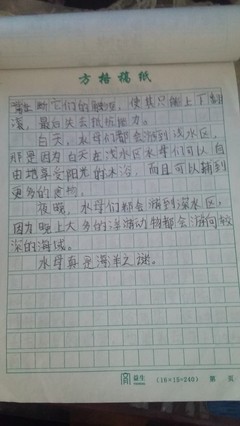 方格稿纸
断它们的触须，使其只能上下翻
滚，最后失去抵抗能力。
白天，水母们都会游到浅水区，
那是因为白天在浅水区水母们可以自
由地享受阳光的沐浴，而且可以捕到
更多的食物。
夜晚，水母们都会游到深水区，
因为晚上大多的浮游动物都会游向较
深的海域。
水母真是海洋之谜。
益生
(16×15=240) 第 页